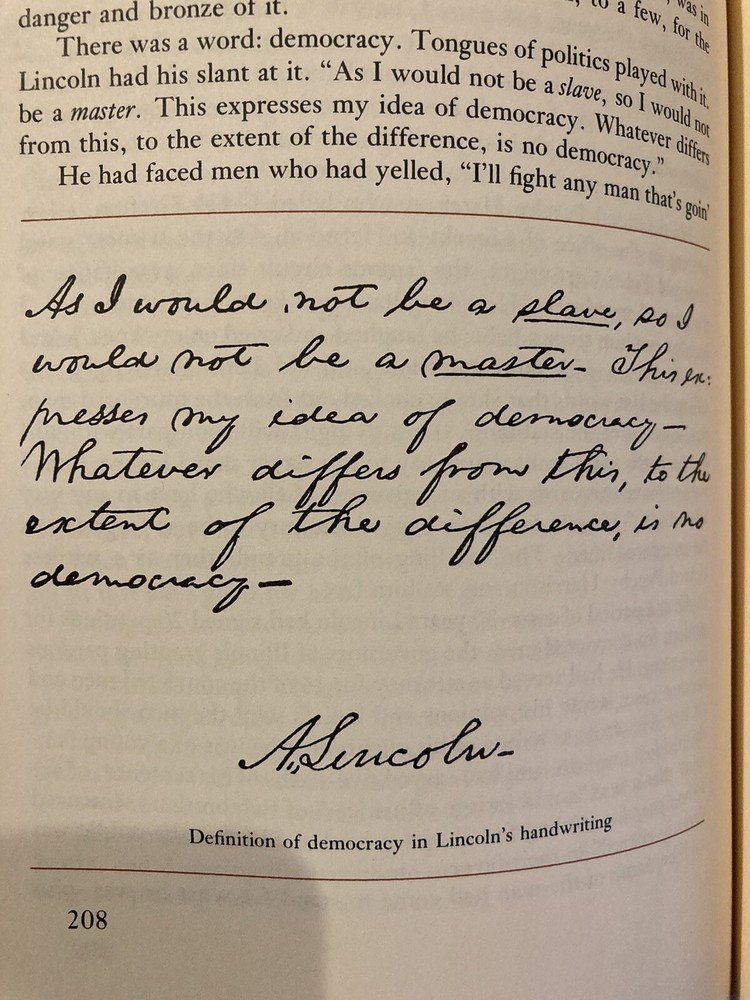 danger and bronze of it. to a few, for the
was in
There was a word: democracy. Tongues of politics played with it.
Lincoln had his slant at it. “As I would not be a slave, so I would not
be a master. This expresses my idea of democracy. Whatever differs
from this, to the extent of the difference, is no democracy.”
He had faced men who had yelled, “I’ll fight any man that’s goin’
As I would not be a slave, so I
would not be a master- This ex-
presses my idea of democracy—
Whatever differs from this, to the
extent of the difference, is no
democracy—
A. Lincoln-
Definition of democracy in Lincoln’s handwriting
208